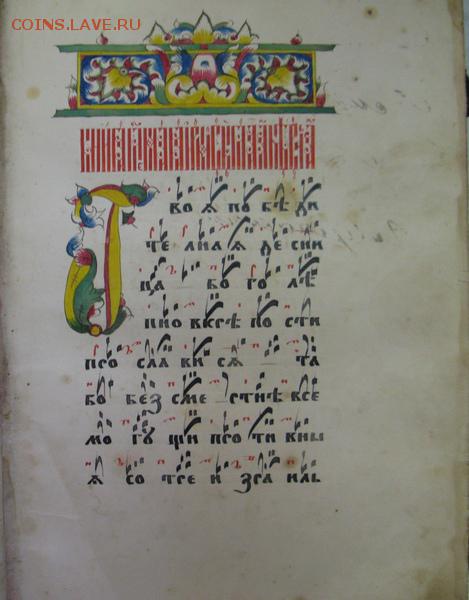 COINS.LAVE.RU
Т во ѧ по бѣ ди
те лна ѧ де сни
ца бо го лѣ
пно вкрѣ по сти
про сла ви сѧ та
бо без сме ртне все
мо гу щи про ти вны
ѧ со тре и зра иль